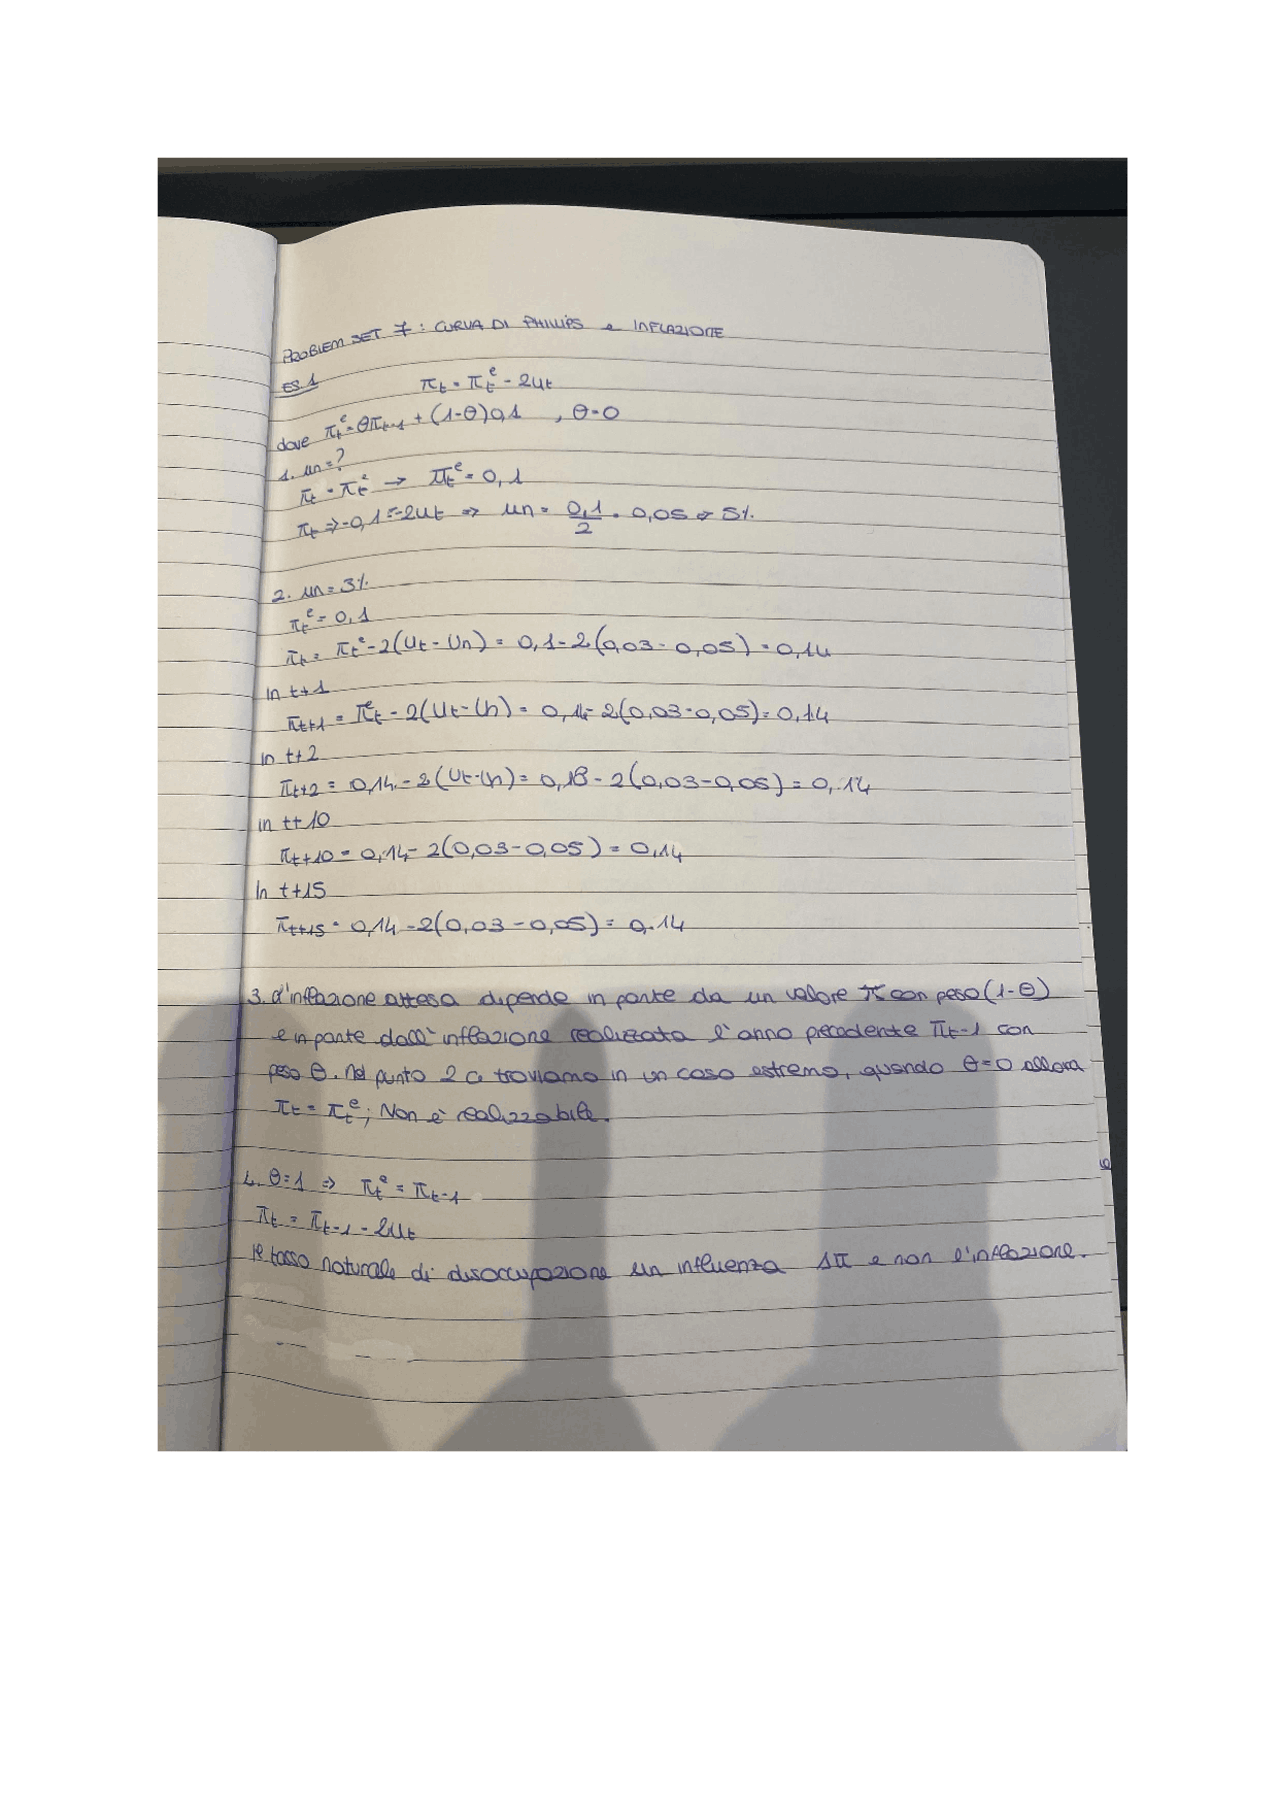 PROBLEM SET 7: CURVA DI PHILLIPS e INFLAZIONE
ES.1
πt = πt^e - 2ut
dove πt^e = θπt-1 + (1-θ)0,1 , θ=0
1. un=?
πt = πt^e → πt^e = 0,1
πt ⇒ -0,1 = -2ut ⇒ un = 0,1/2 = 0,05 ⇒ 5%
2. un = 3%
πt^e = 0,1
πt = πt^e - 2(ut - un) = 0,1 - 2(0,03 - 0,05) = 0,14
In t+1
πt+1 = πt^e - 2(ut - un) = 0,14 - 2(0,03-0,05) = 0,14
In t+2
πt+2 = 0,14 - 2(ut-un) = 0,18 - 2(0,03-0,05) = 0,14
in t+10
πt+10 = 0,14 - 2(0,03-0,05) = 0,14
In t+15
πt+15 = 0,14 - 2(0,03-0,05) = 0.14
3. L'inflazione attesa dipende in parte da un valore π con peso (1-θ)
e in parte dall'inflazione realizzata l'anno precedente πt-1 con
peso θ. Nel punto 2 ci troviamo in un caso estremo, quando θ=0 allora
πt = πt^e; Non è realizzabile.
4. θ=1 ⇒ πt^e = πt-1
πt = πt-1 - 2ut
Il tasso naturale di disoccupazione un influenza Δπ e non l'inflazione.